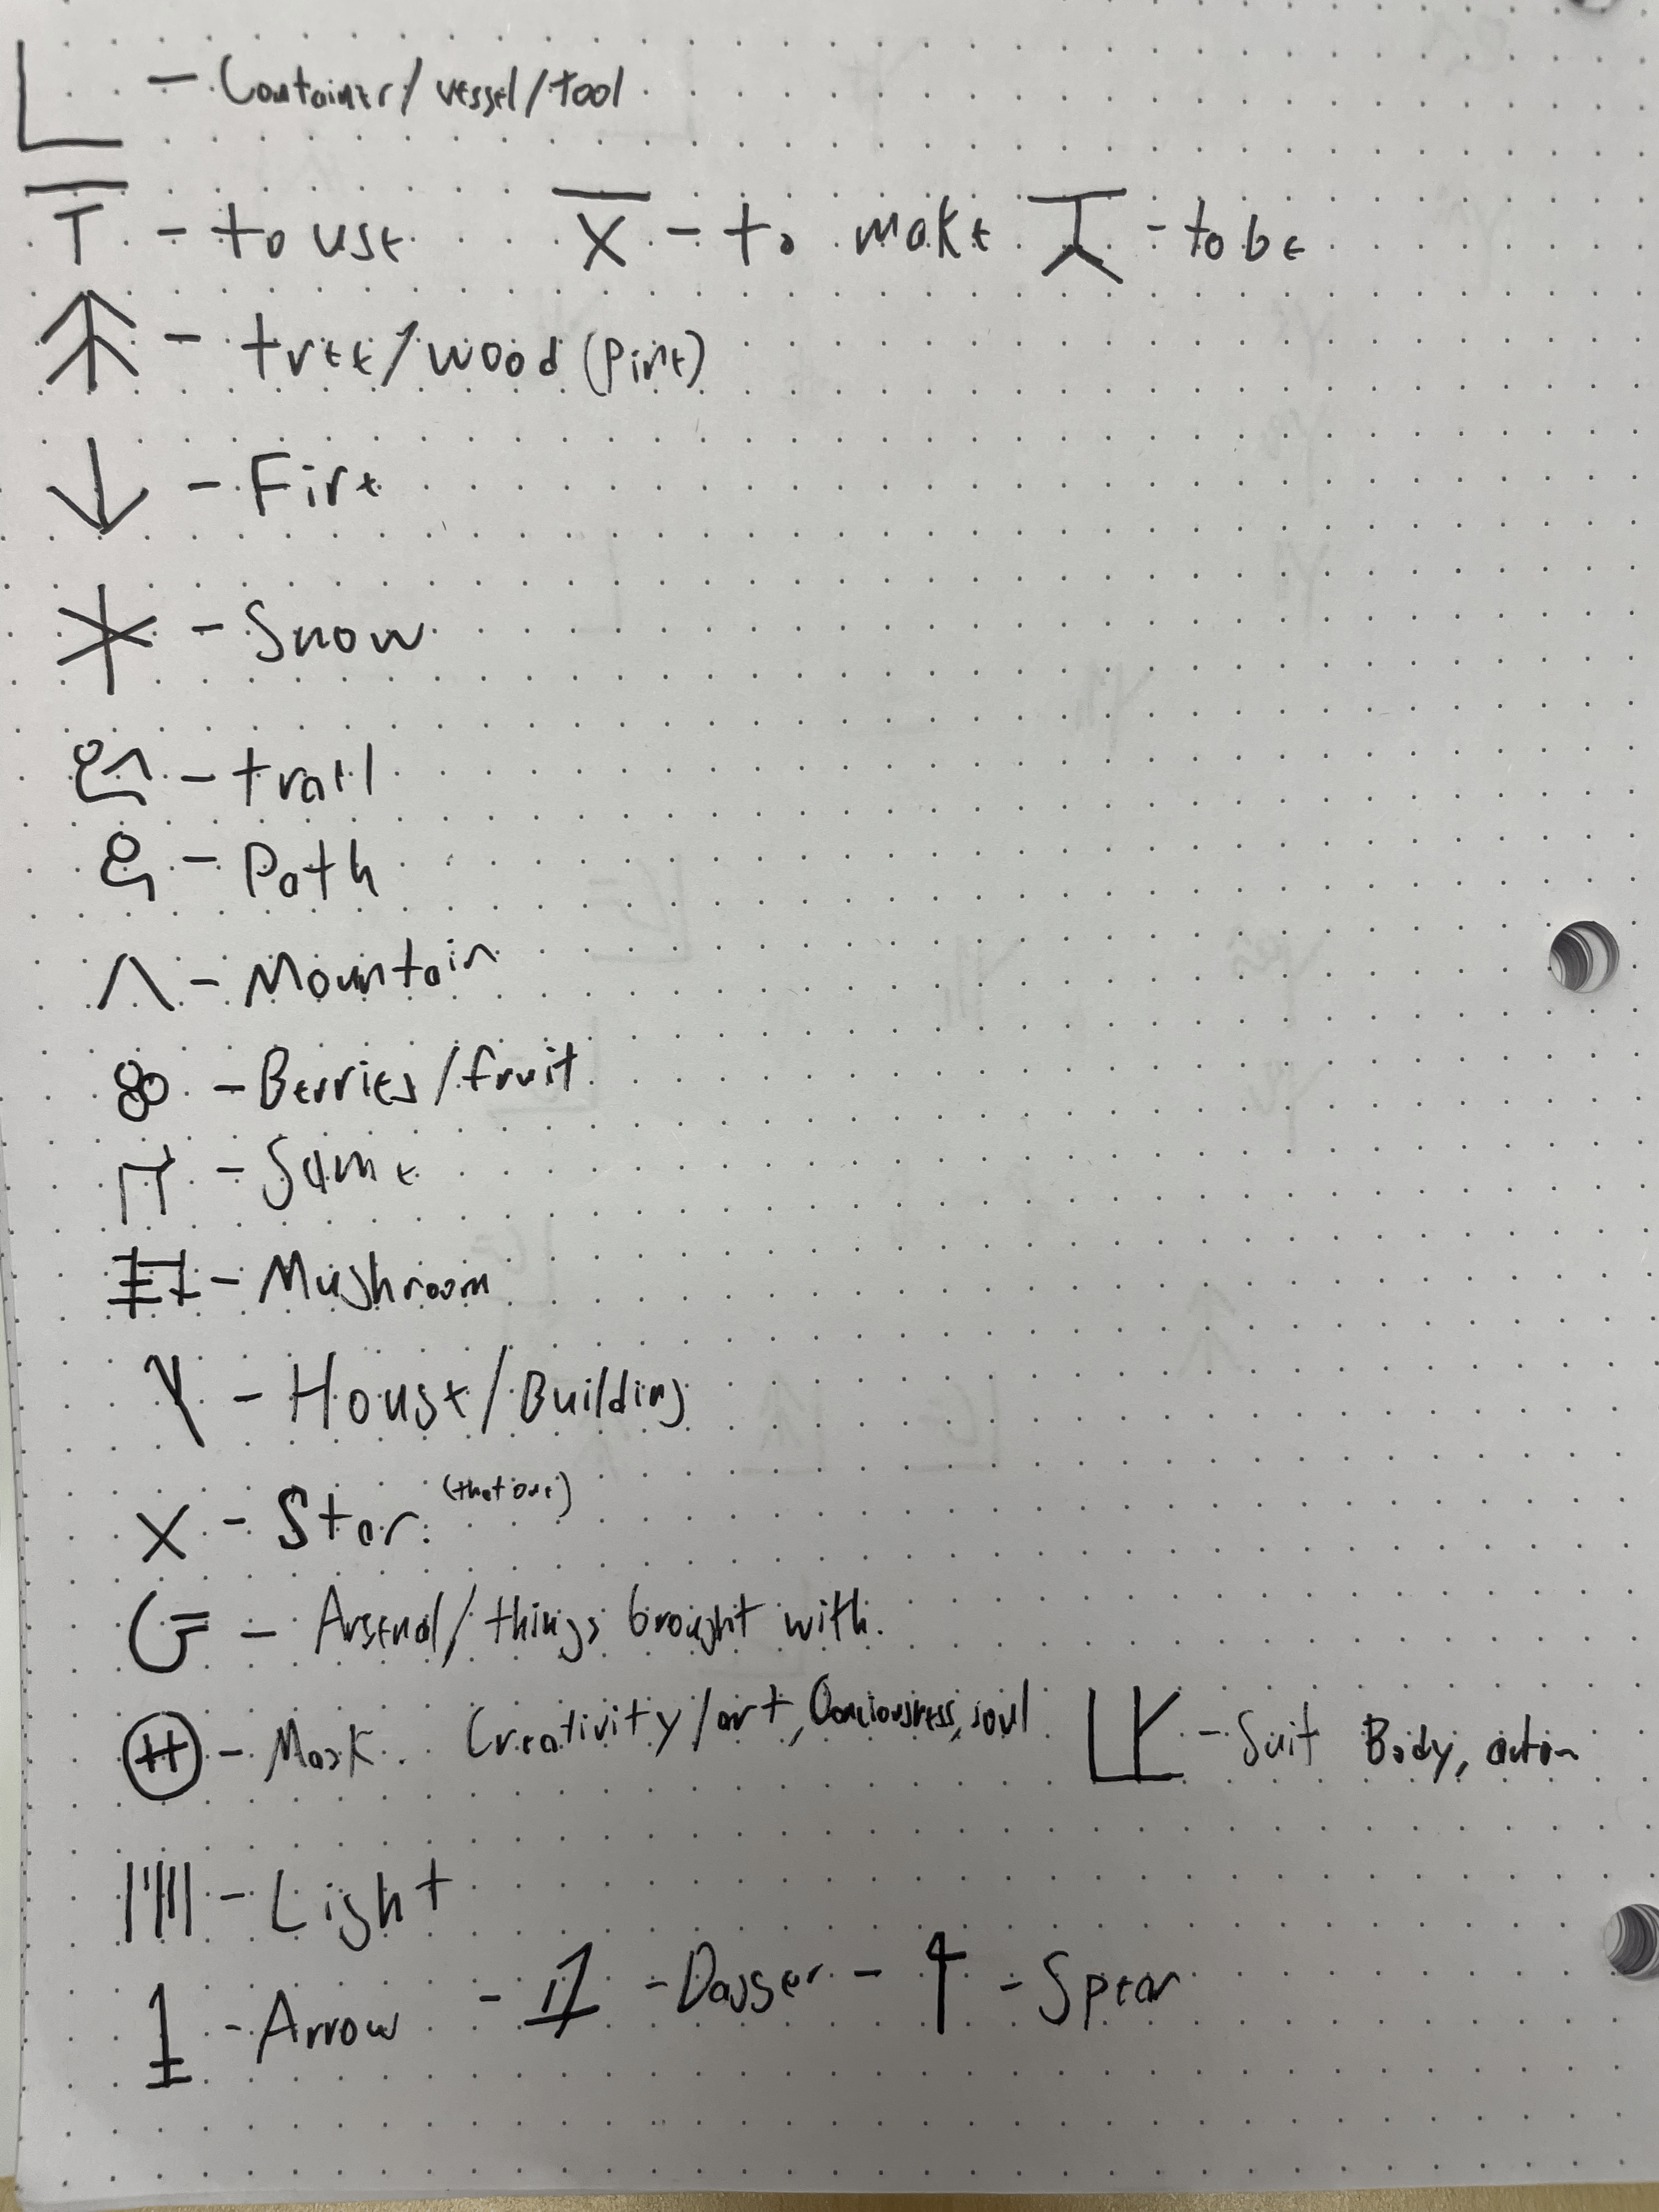 - Container/vessel/tool
- to use - to make - to be
- tree/wood (Pine)
- Fire
- Snow
- trail
- Path
- Mountain
- Berries/fruit
- Same
- Mushroom
- House/Building
- Star (that one)
- Arsenal/things brought with
- Mask Creativity/art, Conciousness, soul - Suit Body, action
- Light
- Arrow - - Dagger - - Spear